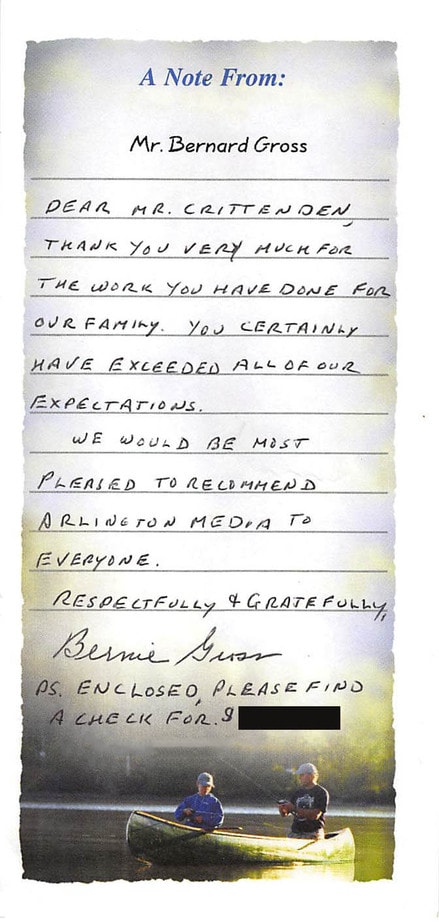 A Note From:
Mr. Bernard Gross
DEAR MR. CRITTENDEN,
THANK YOU VERY MUCH FOR
THE WORK YOU HAVE DONE FOR
OUR FAMILY. YOU CERTAINLY
HAVE EXCEEDED ALL OF OUR
EXPECTATIONS.
WE WOULD BE MOST
PLEASED TO RECOMMEND
ARLINGTON MEDIA TO
EVERYONE.
RESPECTFULLY & GRATEFULLY,
Bernie Gross
PS. ENCLOSED, PLEASE FIND
A CHECK FOR. $